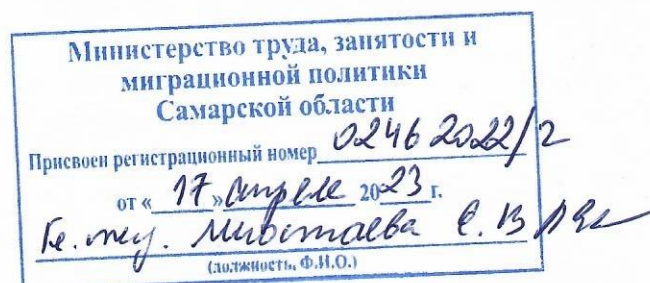 Министерство труда, занятости и
миграционной политики
Самарской области
Присвоен регистрационный номер 02462022/2
от « 17 » апреля 2023 г.
Е. В
(должность, Ф.И.О.)